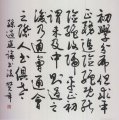 初學分布但求平
正既知平正務追
險絕既能險絕復歸
平正初謂未及中則過之
後乃通會通會
之際人書俱老
孫過庭書譜